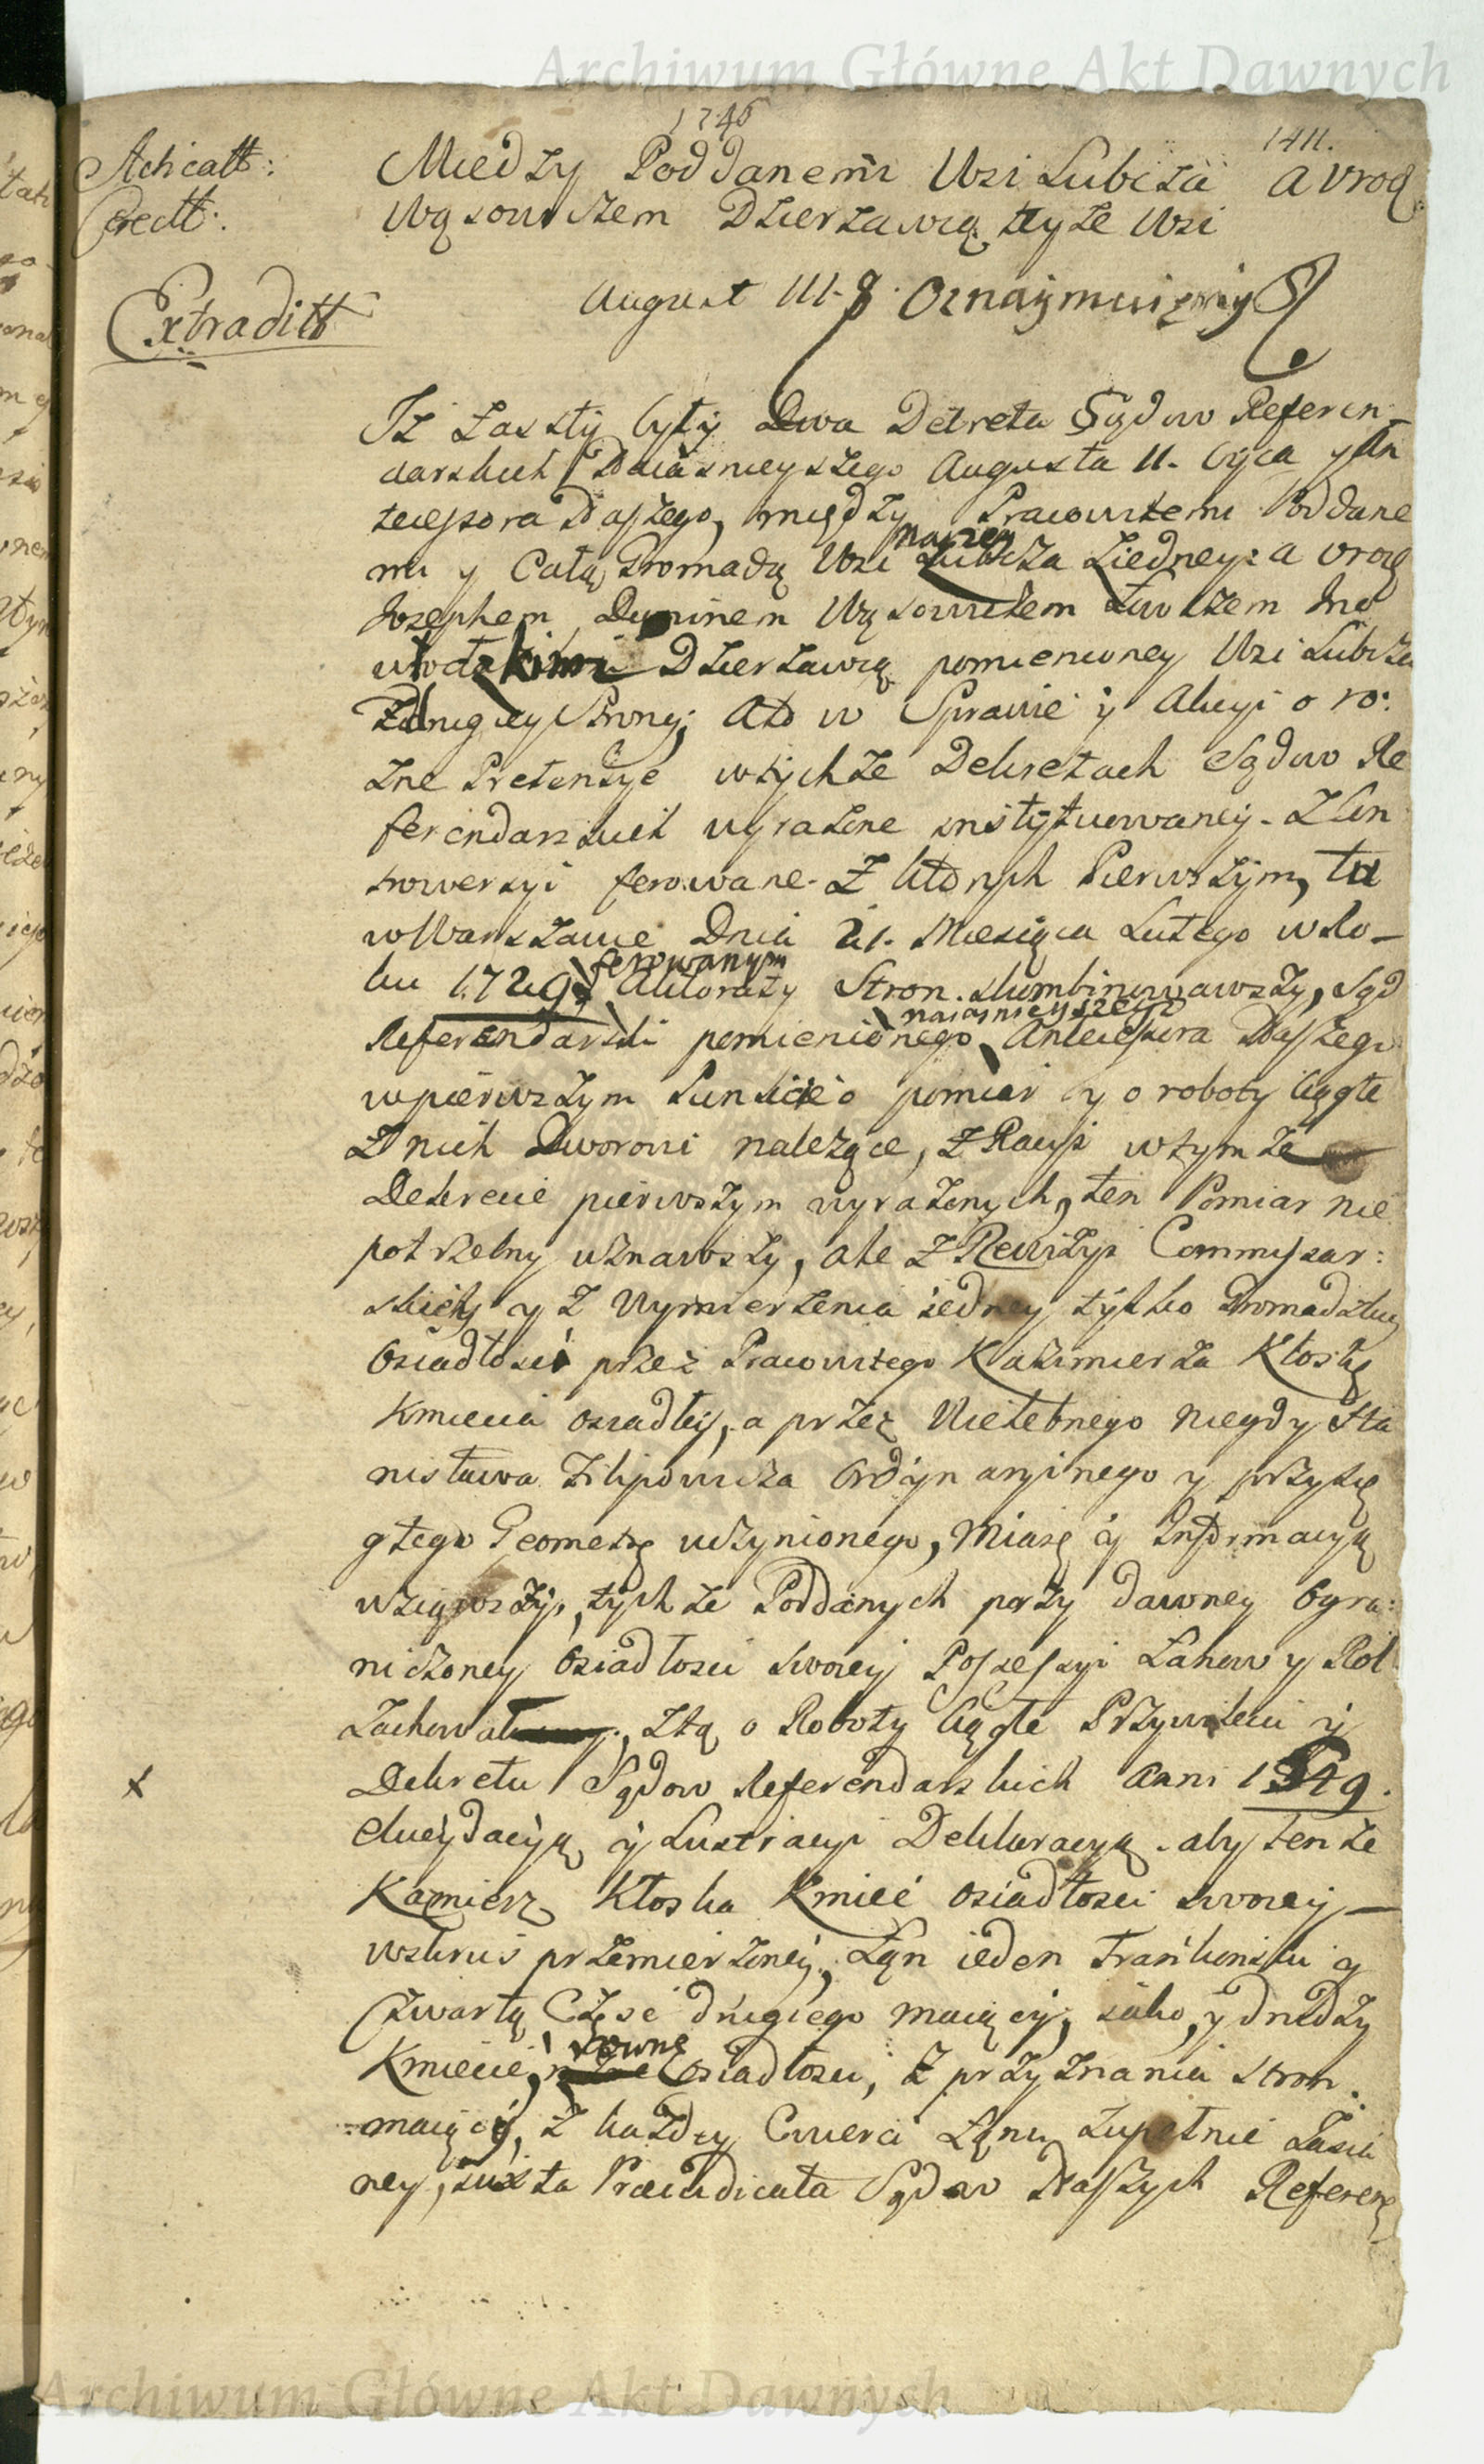 Archiwum Główne Akt Dawnych
1746
1411.
Między Poddanemi Wsi Lubcza a Urod.
Wąsowiczem Dzierzawcą teyze Wsi
Extraditt
August III. 8. Oznaymuięmy
Iz zaszły były Dwa Dekreta Sądow Referen-
darskich Naiasnieyszego Augusta II. Oyca y An
tecessora Naszego, między Pracowitemi Poddane
naszey
mi y Całą Gromadą Wsi Lubcza ziedney: a Urodz
Iozephem Duninem Wąsowiczem
Dzierzawcą pomienioney Wsi Lubcza
zdrugiey strony; Ato w Sprawie y Akcyi o ro:
zne Pretensye wtychze Dekretach Sądow Re
ferendarskich wyrazone instytuowaney. Z Con
trowersyi ferowane. Z ktorych Pierwszym, tu
w Warszawie Dnia 21. Miesiąca Lutego w Ro-
ferowanym
ku 1729. Aktoraty Stron skombinowawszy, Sąd
naiasnieyszego
Referendarski pomienionego Antecessora Naszego
wpierwszym Punkcie o pomiar y o roboty Ciągłe
Z nich Dworowi nalezące, z Racyi wtymze
Dekrecie pierwszym wyrazonych, ten Pomiar nie
potrzebny uznawszy, ale z Rewizyi Commissar:
skiey y z Wymierzenia iedney tylko Gromadzkiey
Osiadłosci przez Pracowitego Kazimierza Kłoskę
Kmiecia osiadłey, a przez Uczciwego niegdy Sta
nisława Filipowicza Ordynaryinego y przysię
głego Geometrę uczynionego, Miarę y Informacyą
wziąwszy, tychze Poddanych przy dawney Ogra:
niczoney Osiadłosci swoiey Possessyi Łanow y Rol
Zachował, ztą o Roboty Ciągłe Przywileiu y
Dekretu Sądow Referendarskich Anni 1549.
elucydacyą y Lustracyi Deklaracyą. aby tenze
Kazmierz Kłoska Kmieć Osiadłosci swoiey
wzkruś przemierzoney, Łan ieden Frankonski y
Czwartą Część drugiego maiący, iako y drudzy
rowne
Kmiecie, Osiadłosci, z przyznania stron.
maiący, z kazdey Cwierci Łanu zupełnie Zasia
ney, iuxta Praeiudicata Sądow Naszych Referen
Archiwum Główne Akt Dawnych